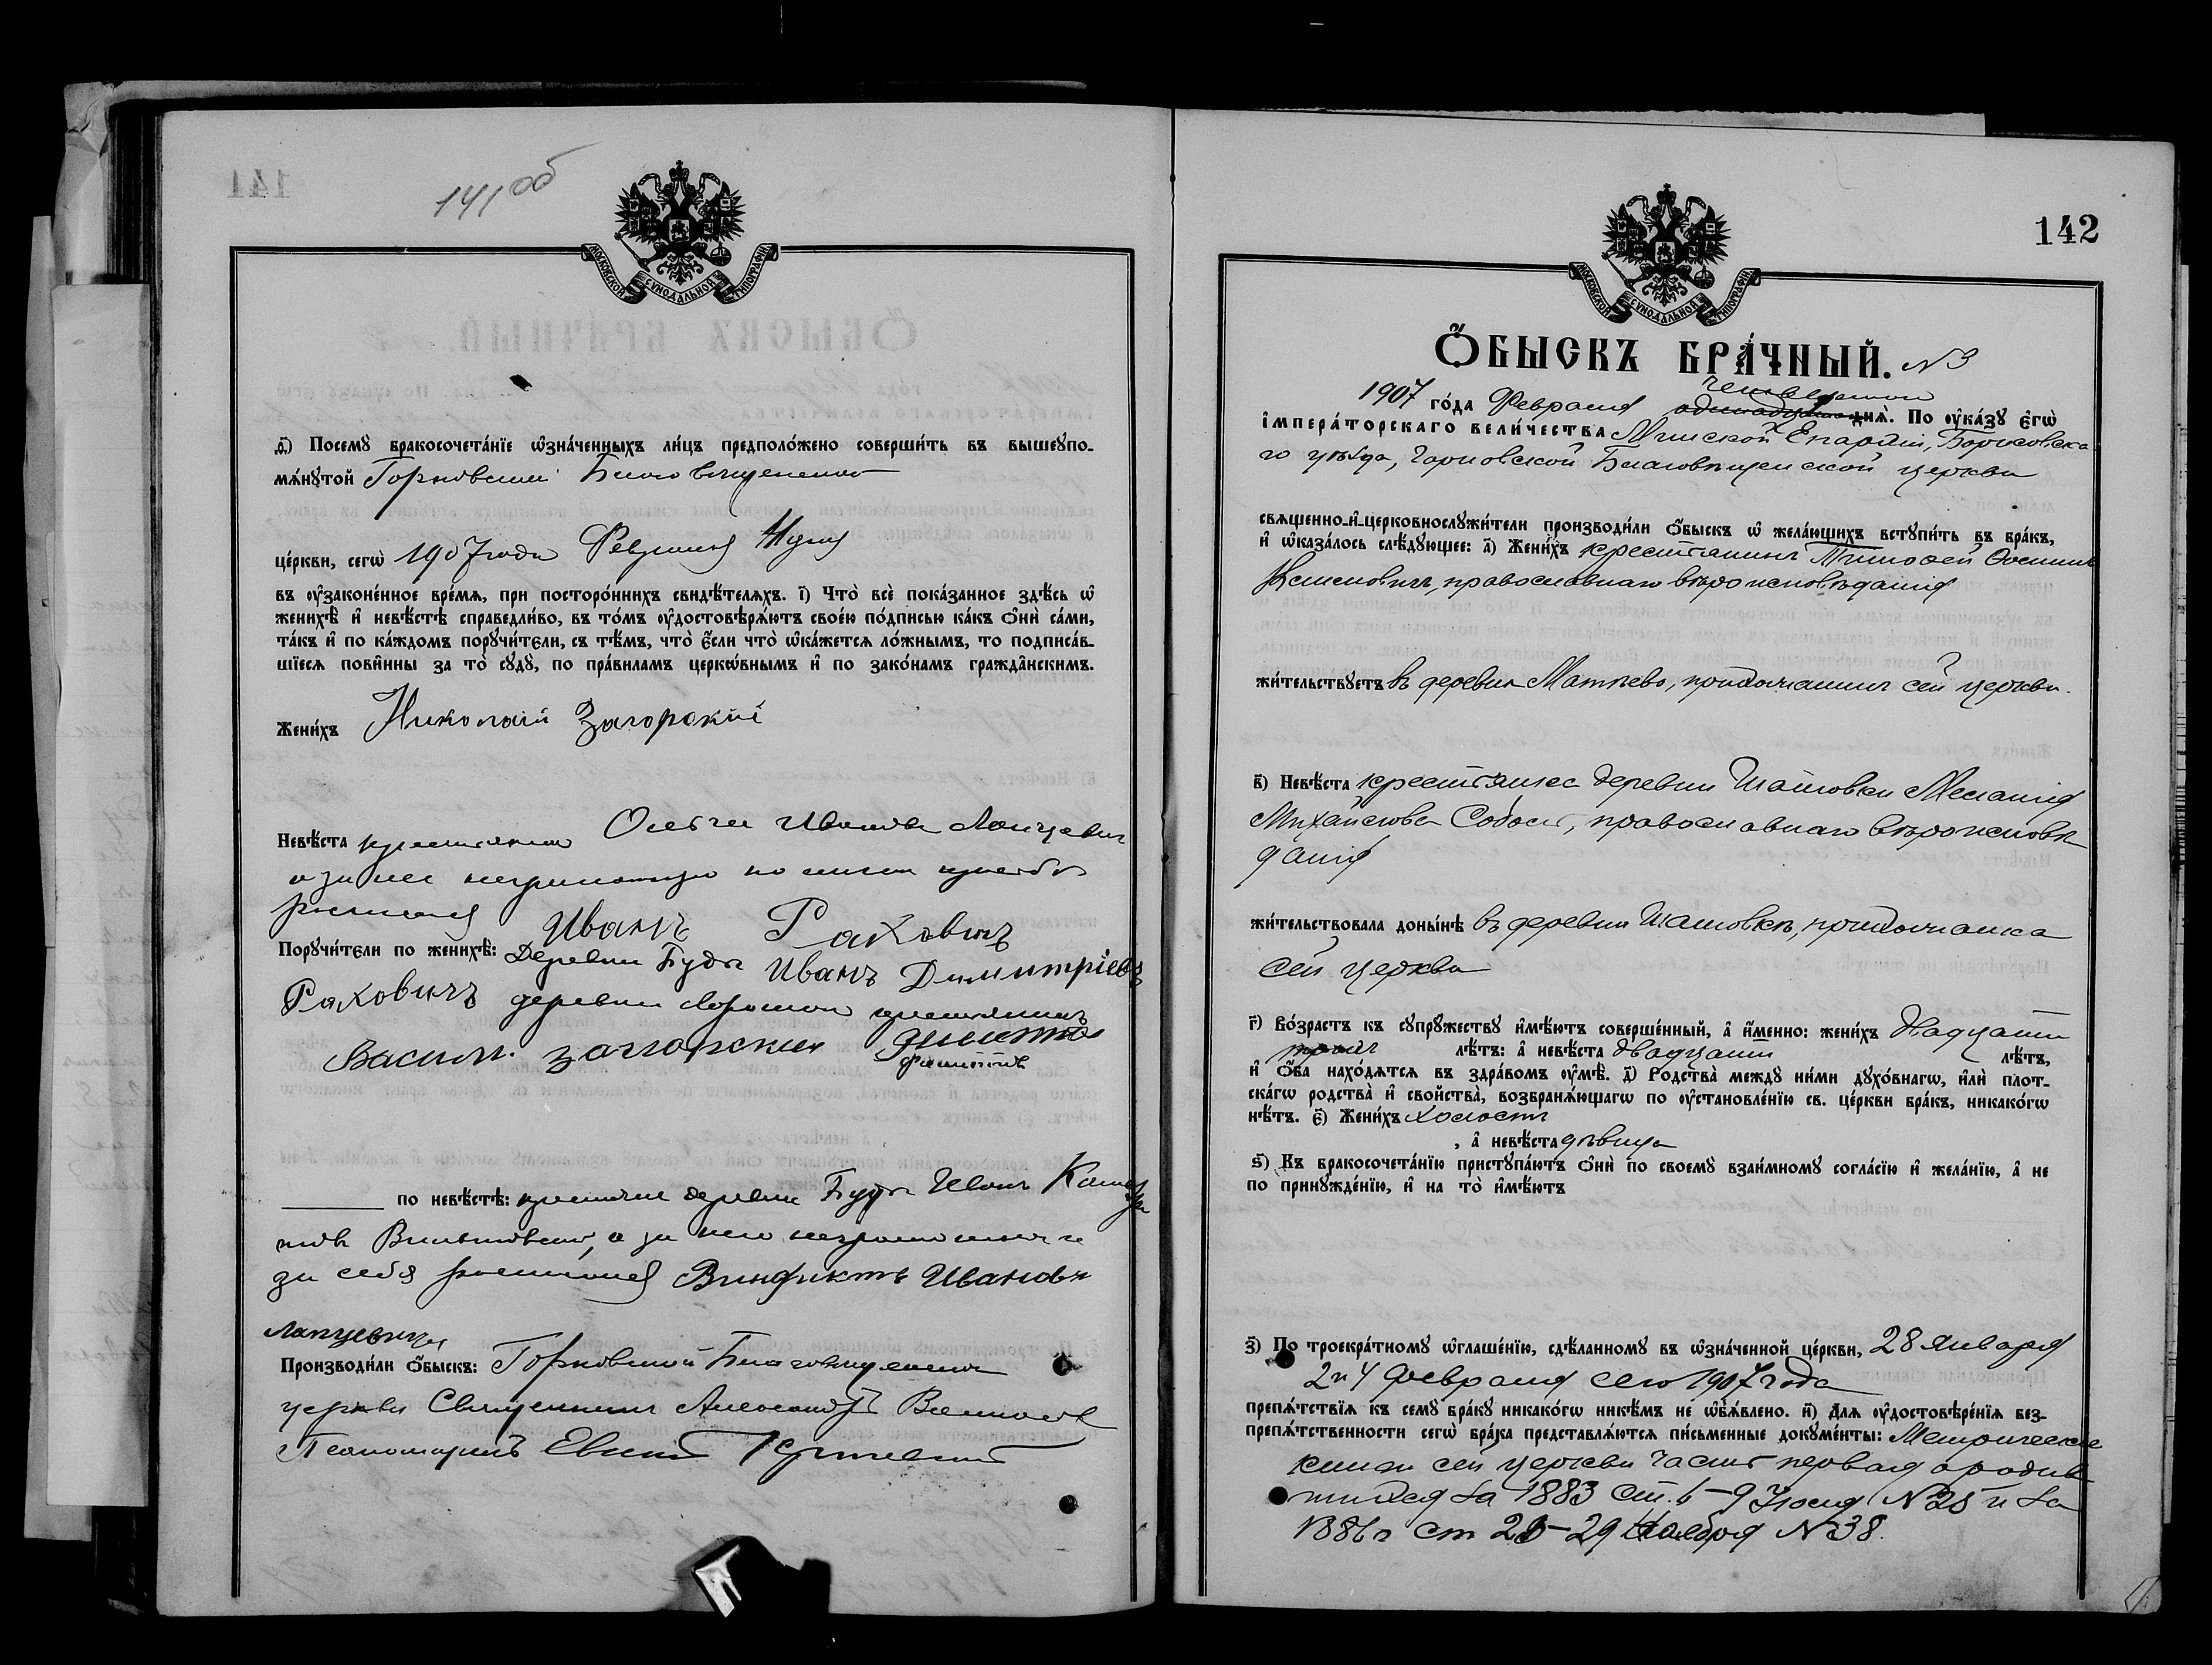 141 об
МОСКОВСКОЙ СУНОДАЛЬНОЙ ТИПОГРАФІИ
д҃і) Посему бракосочетáнїе ѡзнáченныхъ ли́цъ предположено совершить въ вышеупо-
мѧнутой Горновской Благовѣщенской
цéркви, сегѡ 1907 года Февраля
въ оузаконéнное врéмѧ, при посторóннихъ свидѣ́телѧхъ. і҃) Чтò всè показанное здѣсь ѡ
женихѣ́ и невѣ́стѣ справедли́во, въ тóмъ оудостовѣрѧ́ютъ своéю пóдписью кáкъ ѻни сáми,
тáкъ и по кáждомъ поручи́тели, съ тѣмъ, чтò éсли чтò ѡкáжетсѧ лóжнымъ, то подписáв-
шїесѧ пови́нны за тò суду, по прáвиламъ церкóвнымъ и по закóнамъ граждáнскимъ.
Жени́хъ Николай Загорскій
Невѣ́ста крестьянка Ольга Иванова Лапцевич
а за нее неграмотную по личной просьбѣ
росписался Иванъ Раховичъ
Поручи́тели по женихѣ́: Деревни Буды Иванъ Димитріевъ
Раховичъ деревни крестьянинъ
Васил. загорский
по невѣ́стѣ: деревни Буды Иванъ
а за него неграмотнаго
за себя росписался Иановъ
Лапцевичъ
Производи́ли ѻбыскъ: Горновской Благовѣщенской
церкви Священникъ Александръ
Псаломщикъ
142
МОСКОВСКОЙ СУНОДАЛЬНОЙ ТИПОГРАФІИ
ѺБЫСКЪ БРÁЧНЫЙ. N 3
четвертого
1907 гóда Февраля дня̀. По оукáзу єгѡ̀
ІМПЕРÁТОРСКАГО ВЕЛИ́ЧЕСТВА Минской Епархіи, Борисовска
го уѣзда, Горновской Благовѣщенской церкви
свѧщенно-и-церковнослужи́тели производи́ли ѻбыскъ ѡ желáющихъ вступи́ть въ брáкъ,
и ѡказáлось слѣ́дующее: а҃) Жени́хъ крестьянинъ Тимофей Осиповъ
православнаго вѣроисповѣданія
жи́тельствуетъ въ деревни Матіево, прихожанинъ сей церкви.
в҃) Невѣ́ста крестьянка деревни Шаповки Меланія
Михайлова Соболь, православнаго вѣроисповѣ
данія
жи́тельствовала доны́нѣ въ деревни Шаповкѣ, прихожанка
сей церкви
г҃) Вóзрастъ къ супружеству имѣ́ютъ совершéнный, а и́менно: жени́хъ двадцати
трехъ лѣтъ: а невѣ́ста двадцати лѣтъ,
и ѻба нахóдѧтсѧ въ здрáвомъ оумѣ̀. д҃) Родствà между ни́ми духóвнагѡ, или плот-
скáгѡ родствà и свойствà, возбранѧ́ющагѡ по оустановлéнїю св. цéркви брáкъ, никакóгѡ
нѣтъ. є҃) Жени́хъ холостъ
, а невѣ́ста дѣвица
ѕ҃) Къ бракосочетáнїю приступáютъ ѻни по своему взаи́мному соглáсїю и желáнїю, а не
по принуждéнїю, и на тò имѣ́ютъ
з҃) По троекрáтному ѡглашéнїю, сдѣ́ланному въ ѡзнáченной цéркви, 28 января
2 и 4 февраля сего 1907 года
препѧ́тствїѧ къ сему брáку никакóгѡ никѣ́мъ не ѡб̾ѧ́влено. и҃) Длѧ оудостовѣрéнїѧ без-
препѧ́тственности сегѡ̀ брáка представлѧ́ютсѧ пи́сьменные докумéнты: Метрическіе
книги сей церкви часть первая о родив
шихся за 1883 ст. 6–9 Іюля N 25 и за
1886 г ст 26–29 Ноября N 38.